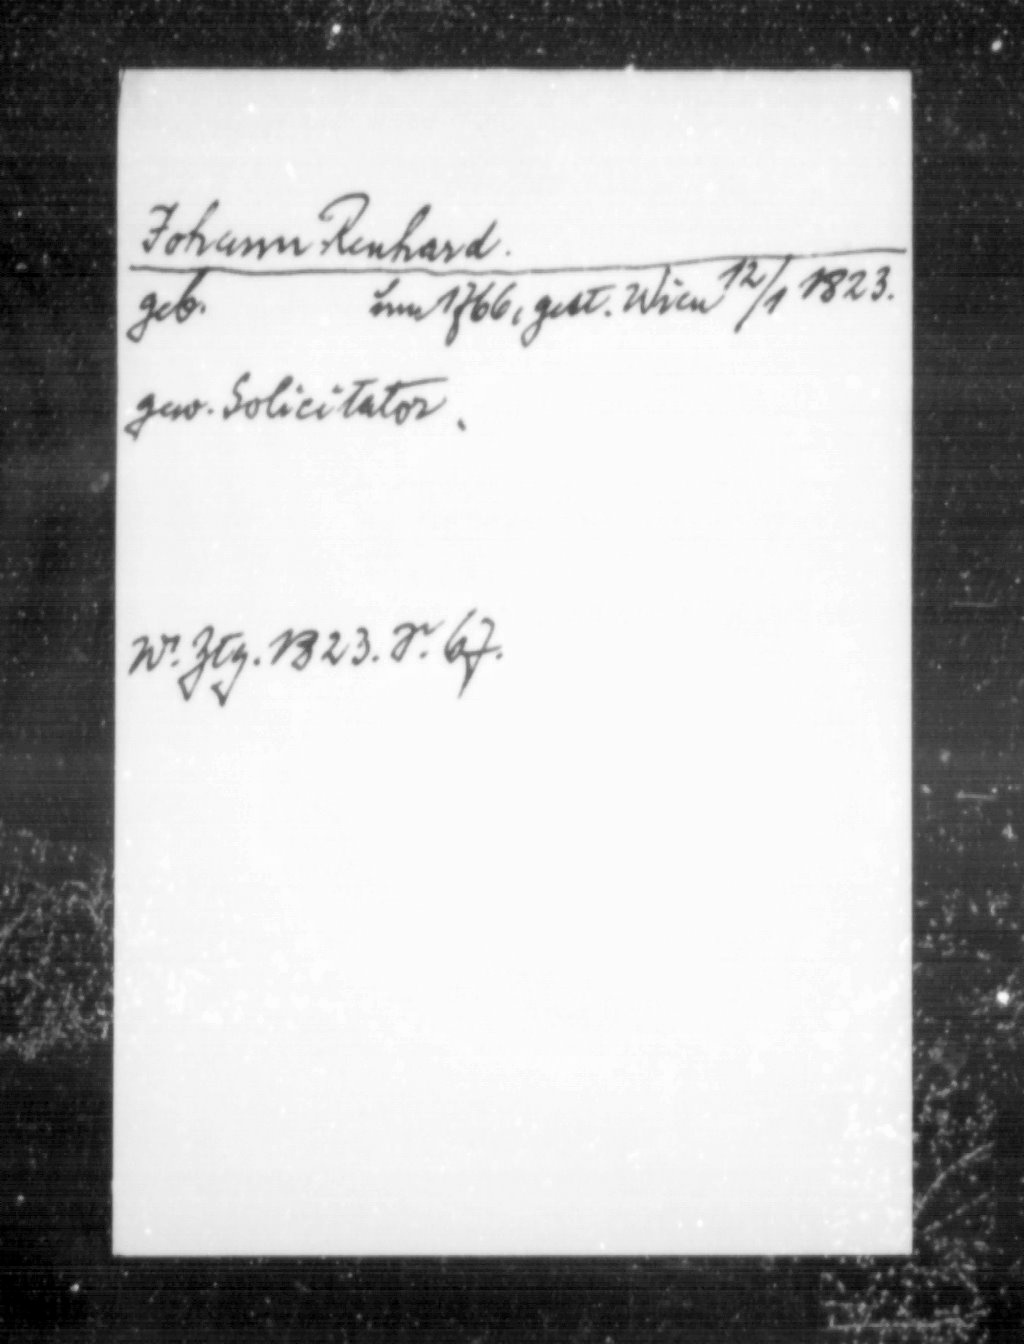 Johann Renhard.
geb. um 1766, gest. Wien 12/1 1823.
gew. Solicitator.
Wr. Ztg. 1823. S. 67.